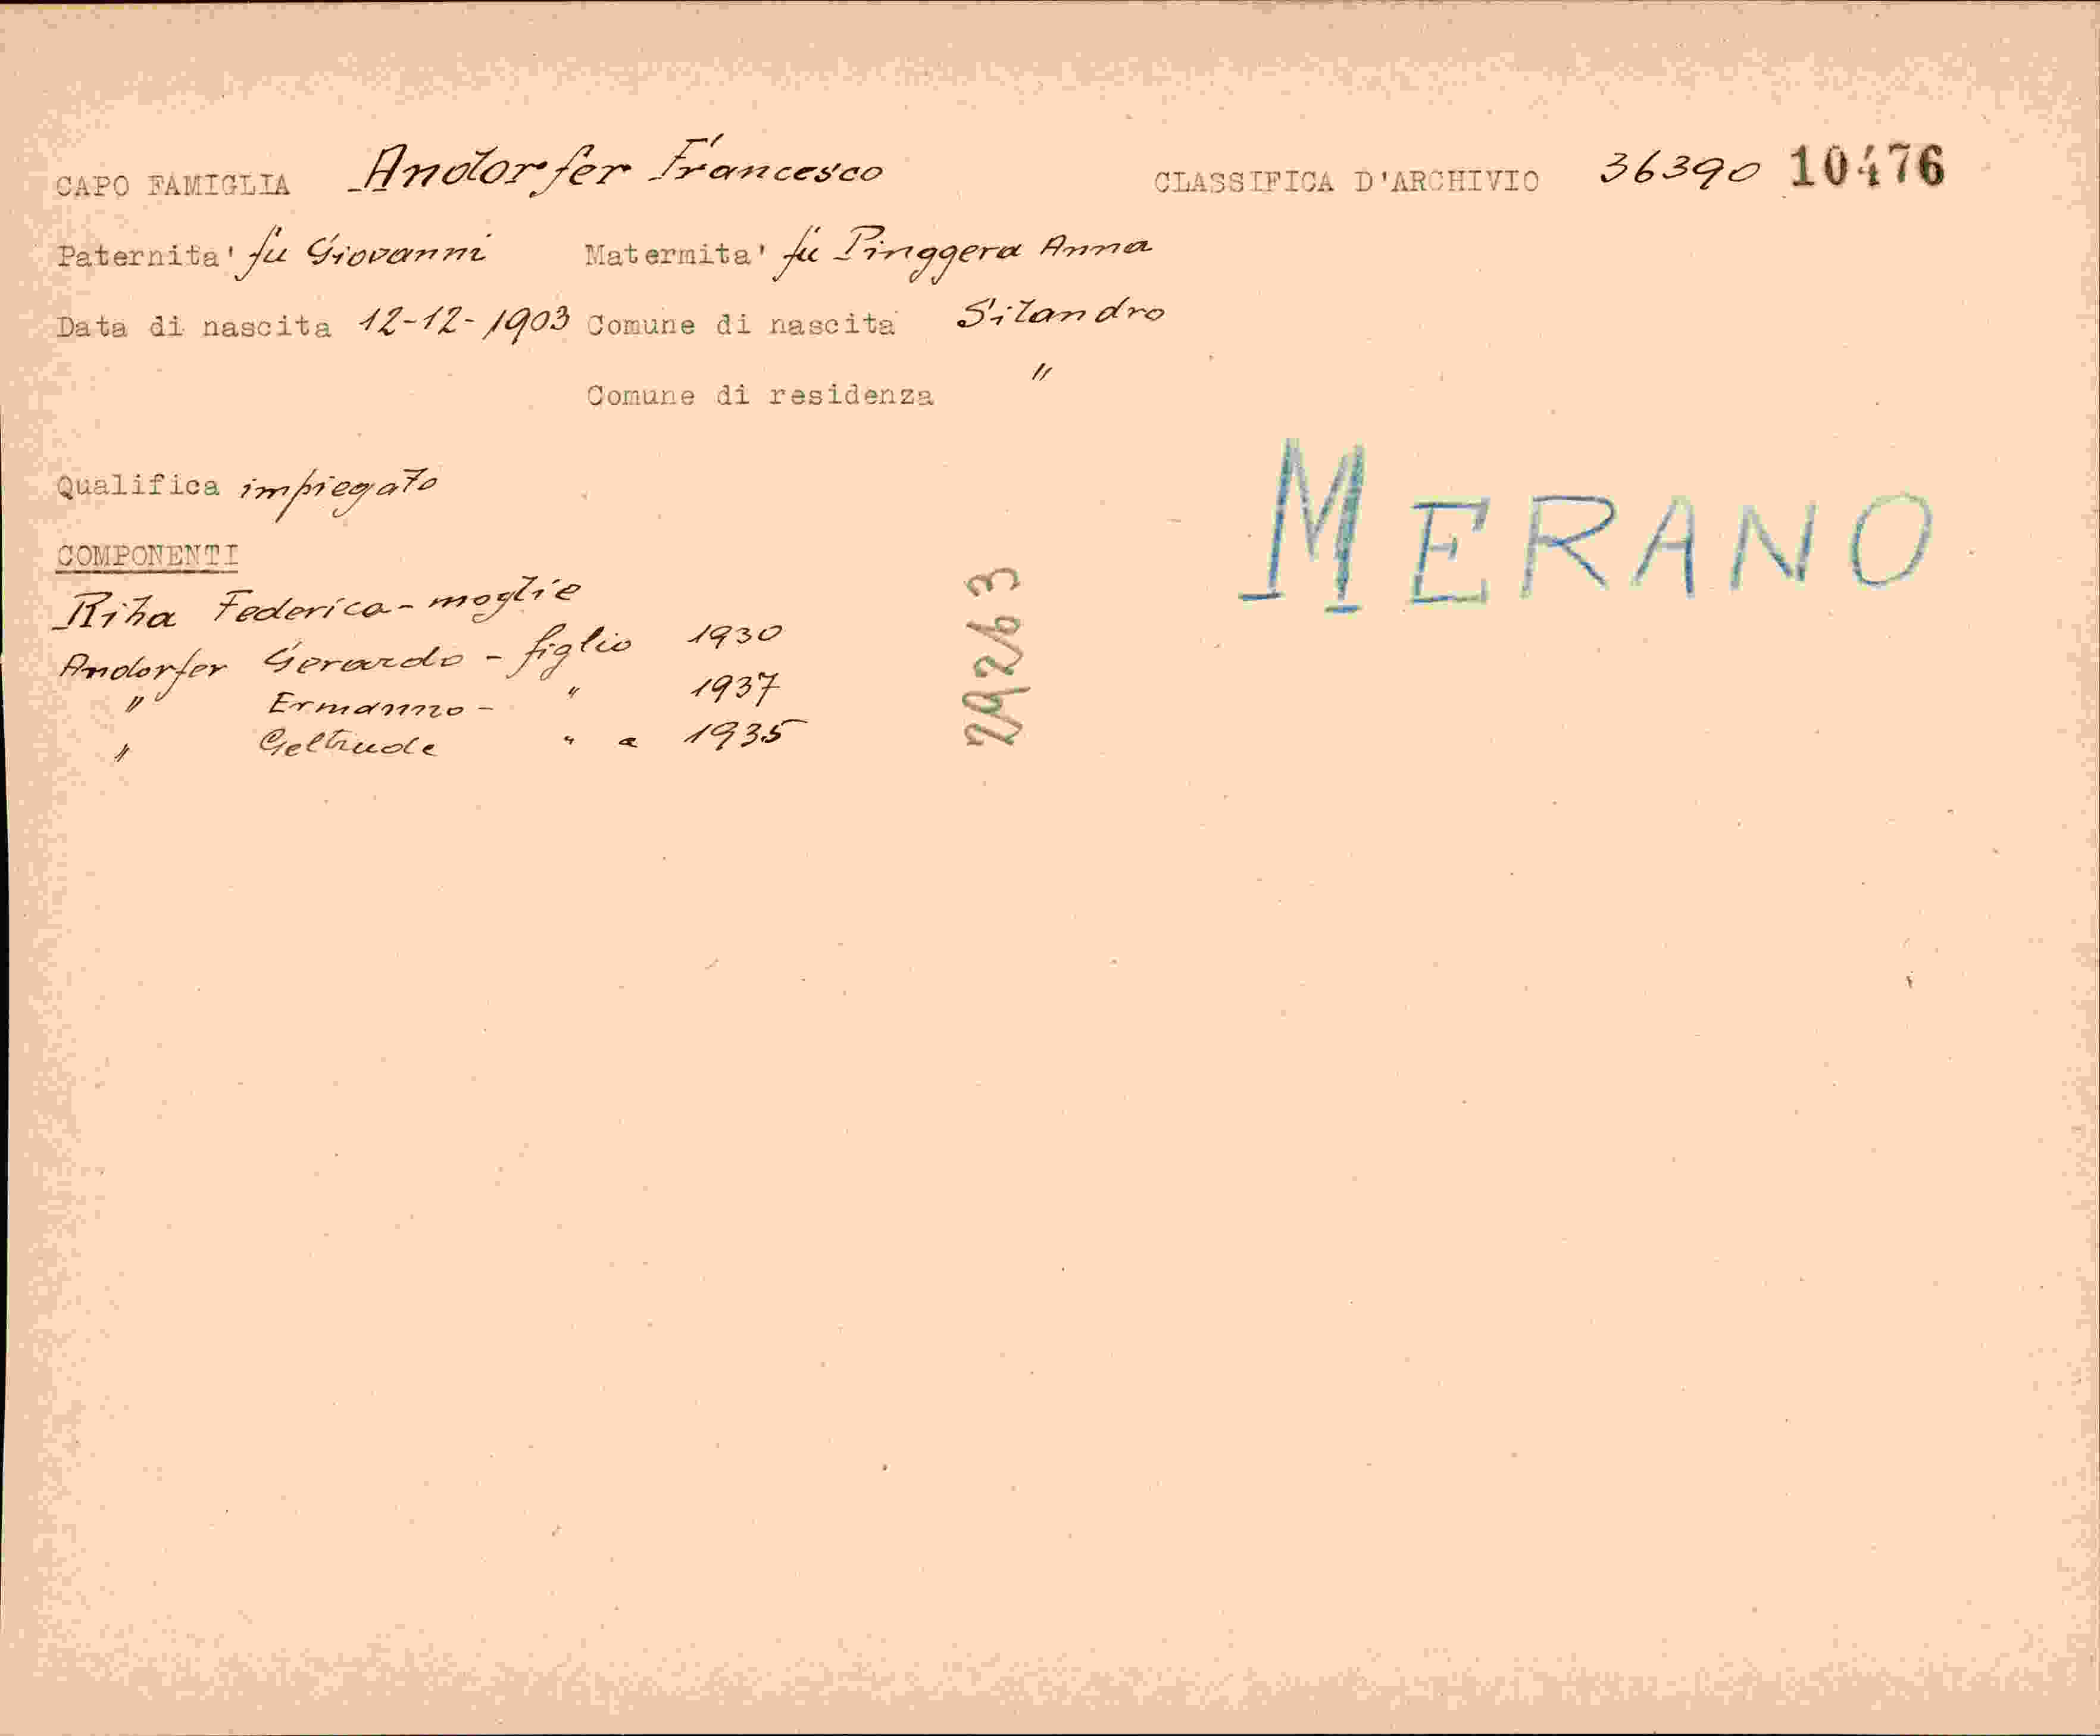 CAPO FAMIGLIA Andorfer Francesco CLASSIFICA D'ARCHIVIO 36390 10476
Paternita' fu Giovanni Matermita' fu Pinggera Anna
Data di nascita 12-12-1903 Comune di nascita Silandro
Comune di residenza "
Qualifica impiegato
MERANO
COMPONENTI
Riha Federica - moglie
Andorfer Gerardo - figlio 1930
" Ermanno - " 1937
" Geltrude " a 1935
29263